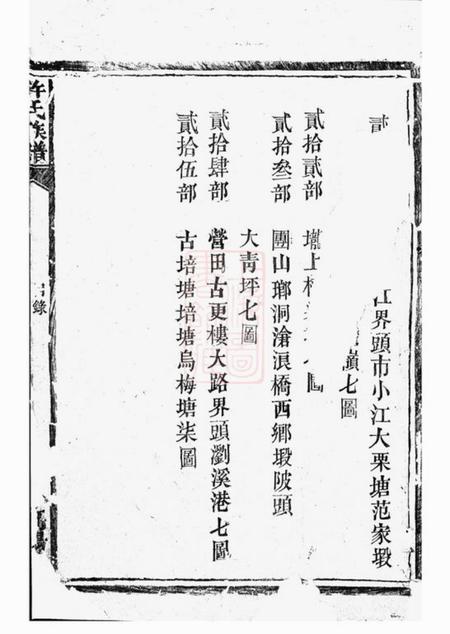 江界頭市小江大栗塘范家塅
嶺七圖
貳拾貳部
壠上
貳拾叁部 團山瑯洞滄浪橋西鄉塅陂頭
大青坪七圖
貳拾肆部 營田古更樓大路界頭瀏溪港七圖
貳拾伍部 古培塘培塘烏梅塘柒圖
許氏族譜
錄